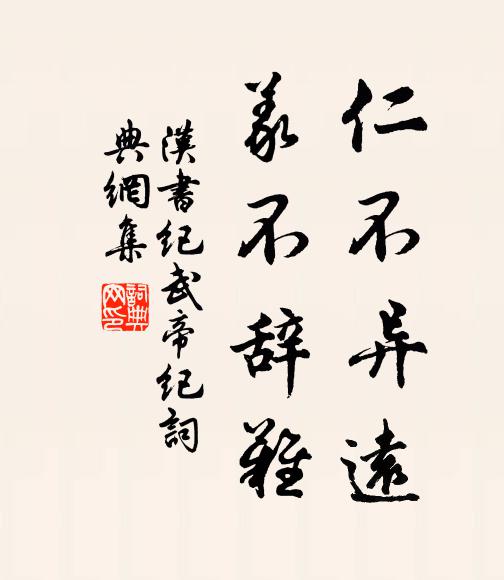 仁不异遠
義不辞難
漢書紀武帝紀詞
典網集
詞典網印